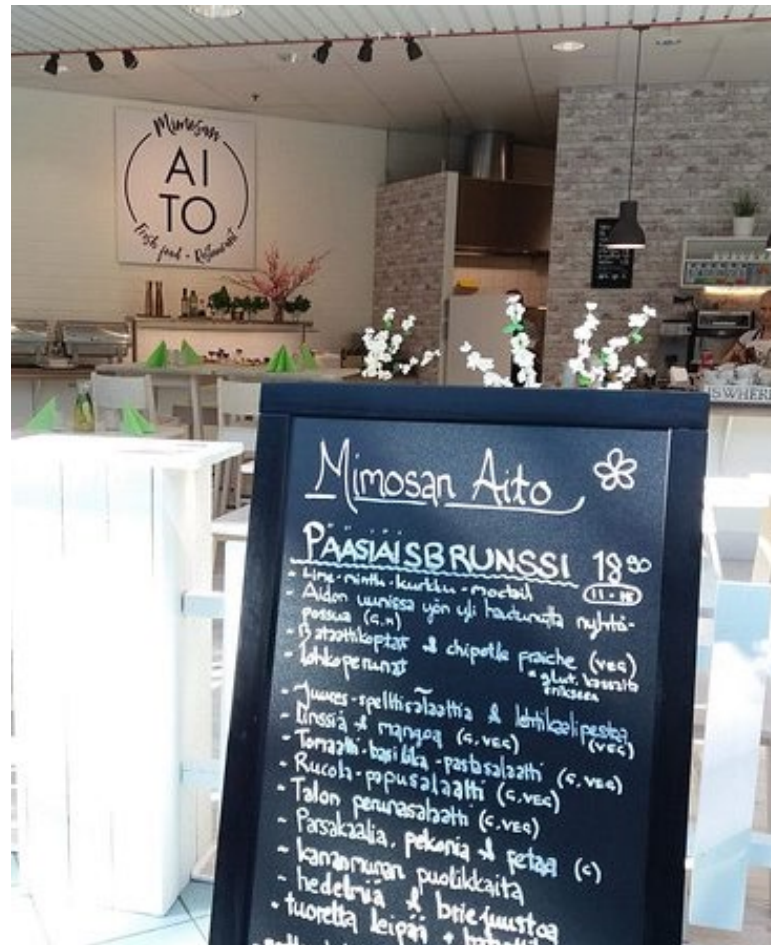 Mimosan
AI
TO
Fresh food - Restaurant
Mimosan Aito
PÄÄSIÄISBRUNSSI 18 90
- Lime-minttu-kurkku-moctail
11-15
- Aidon uunissa yön yli haudutettua nyhtö-
possua (G,M)
- Bataattikoftas & chipotle fraiche (VEG)
- lohkoperunat
* glut.
erikseen
- Juures-spelttisalaattia & lehtikaalipestoa
(VEG)
- Linssiä & mangoa (G,VEG)
- Tomaatti-basilika-pastasalaatti (G,VEG)
- Rucola-papusalaatti (G,VEG)
- Talon perunasalaatti (G,VEG)
- Parsakaalia, pekonia & fetaa (G)
- kananmunan puolikkaita
- hedelmiä & brie-juustoa
- tuoretta leipää +